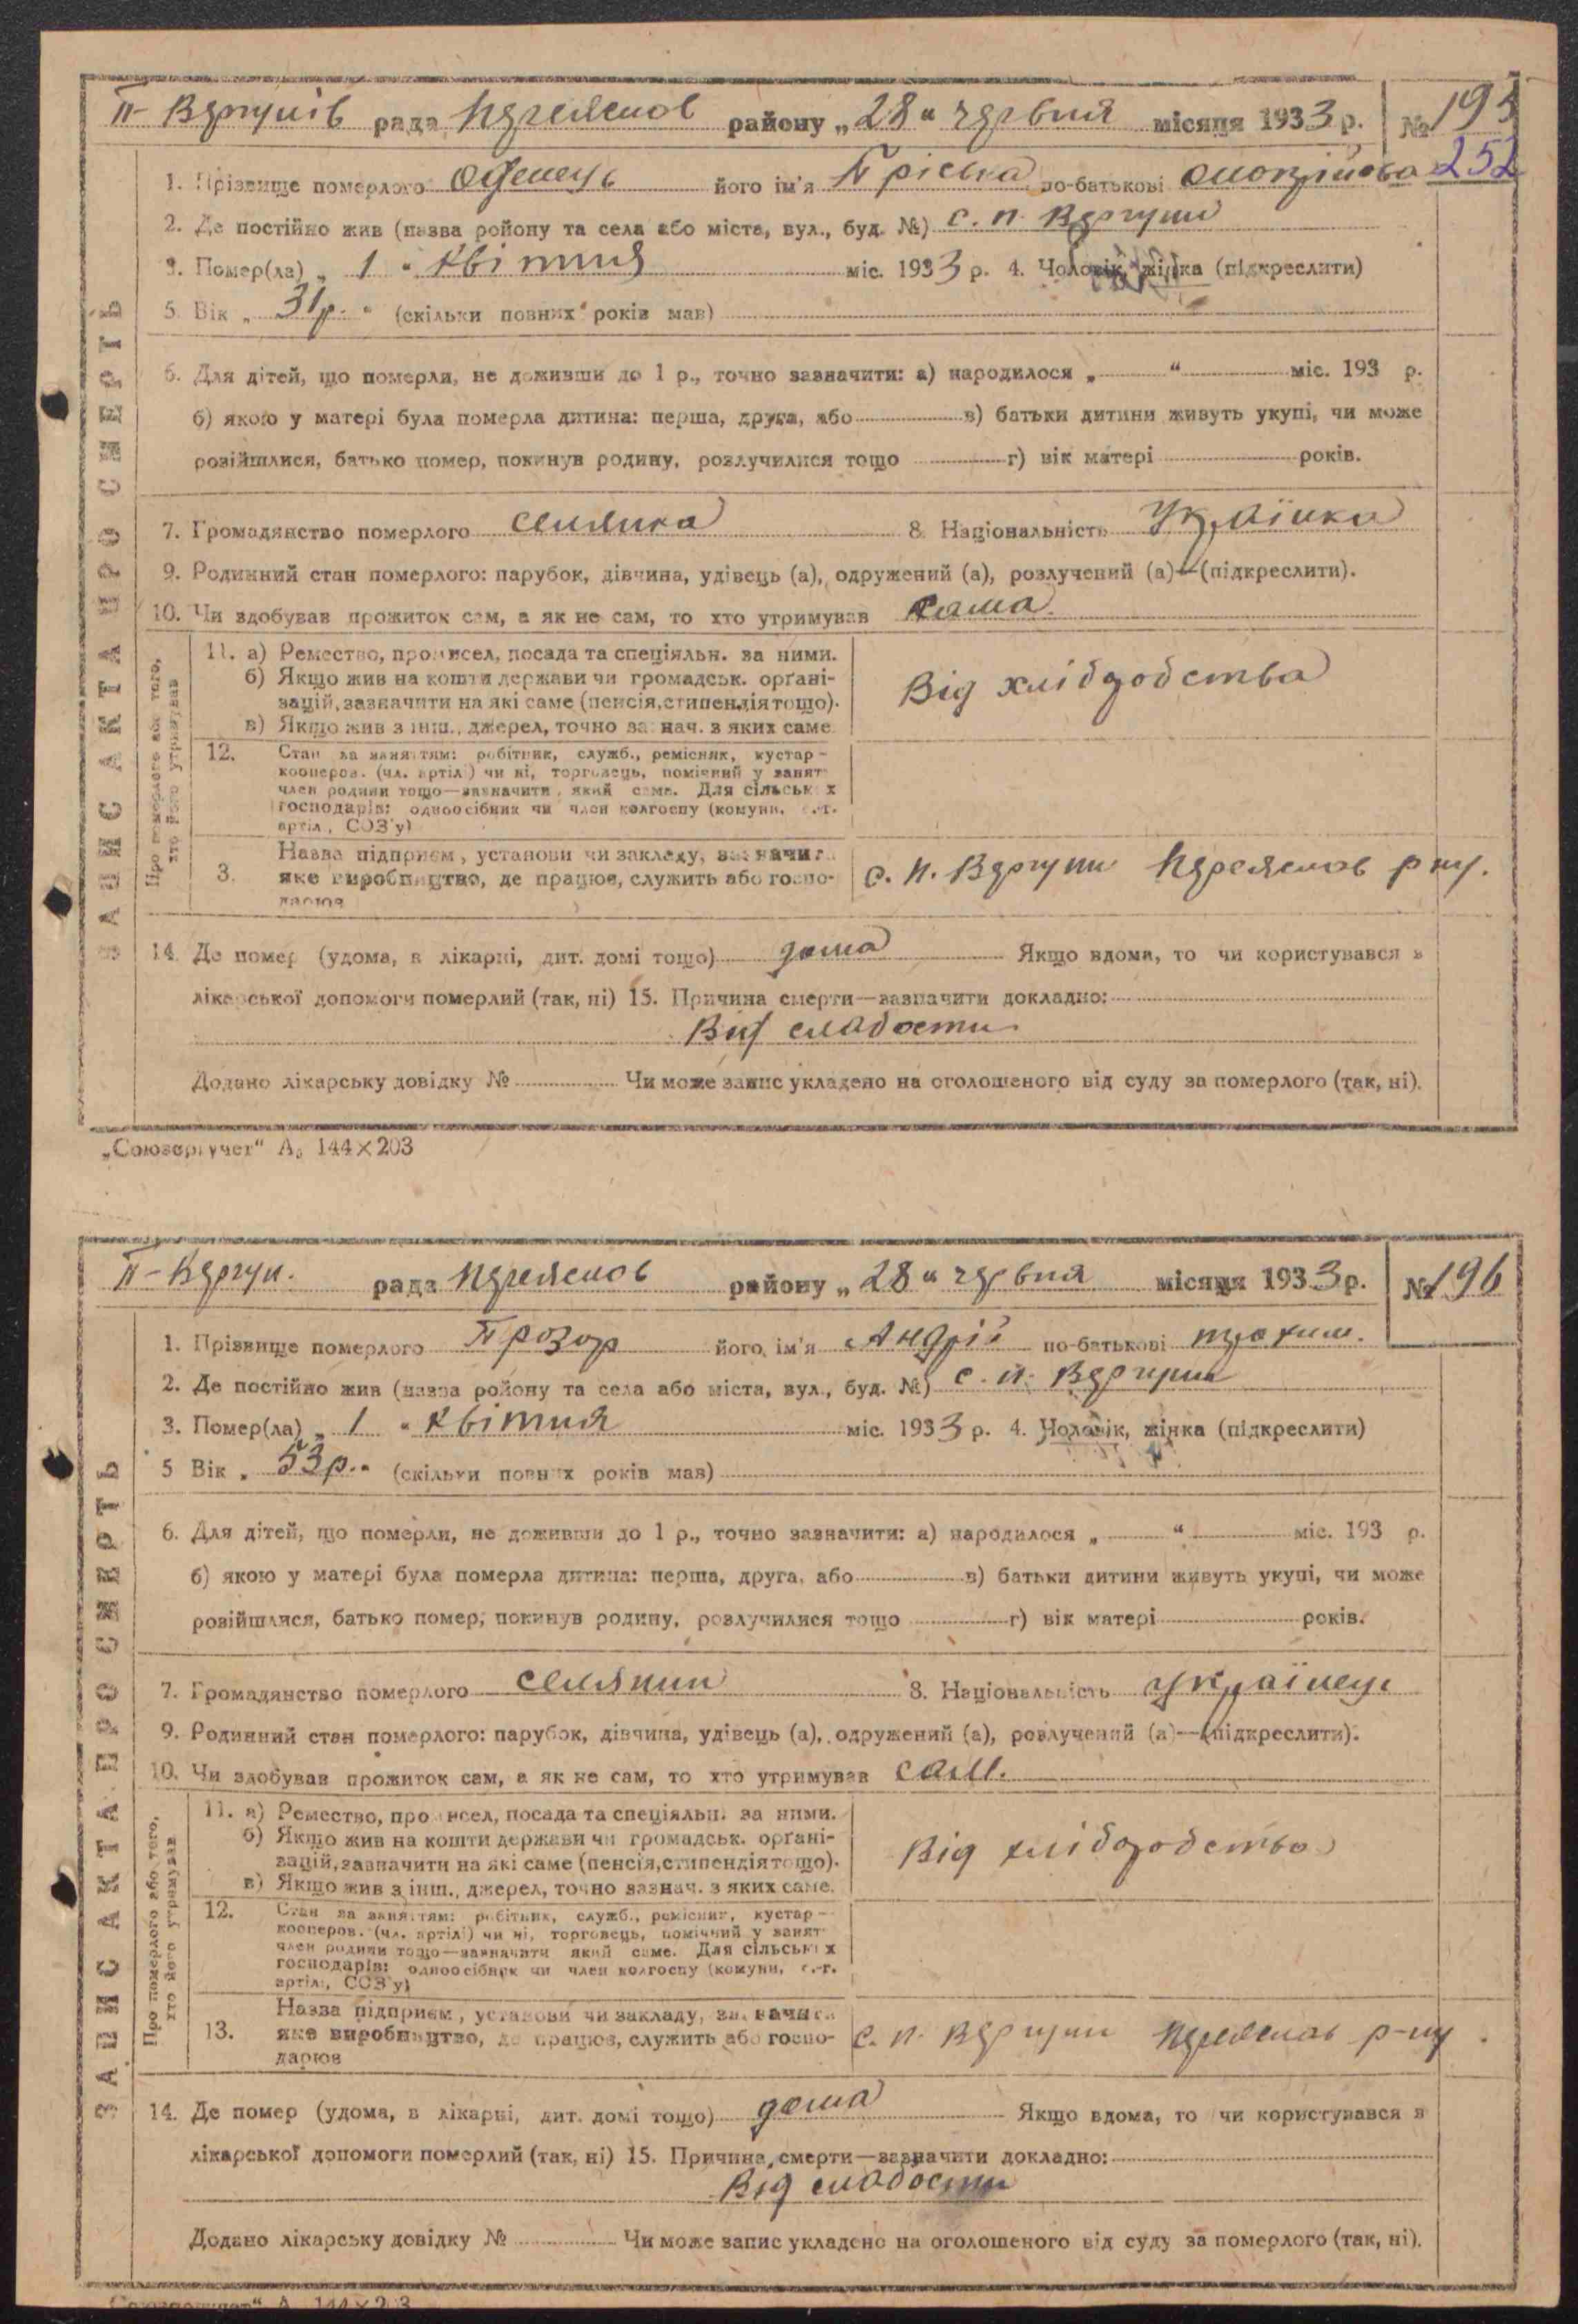 П-Вергунів рада Переяслов району „28" червня місяця 1933 р. № 195
252
1. Прізвище померлого його ім'я Пріська по-батькові
2. Де постійно жив (назва району та села або міста, вул., буд. №) с. П. Вергуни
3. Помер(ла) „ 1 " квітня міс. 1933 р. 4. Чоловік, жінка (підкреслити)
5. Вік „ 31 р. " (скільки повних років мав)
6. Для дітей, що померли, не доживши до 1 р., точно зазначити: а) народилося „ " міс. 193 р.
б) якою у матері була померла дитина: перша, друга, або в) батьки дитини живуть укупі, чи може
розійшлися, батько помер, покинув родину, розлучилися тощо г) вік матері років.
7. Громадянство померлого селянка 8. Національність Українка
9. Родинний стан померлого: парубок, дівчина, удівець (а), одружений (а), розлучений (а)—(підкреслити).
10. Чи здобував прожиток сам, а як не сам, то хто утримував сама
ЗАПИС АКТА ПРО СМЕРТЬ
Про померлого або того,
хто його утримував
11. а) Ремество, промисел, посада та спеціяльн. за ними.
б) Якщо жив на кошти держави чи громадськ. орґані-
зацій, зазначити на які саме (пенсія, стипендія тощо).
в) Якщо жив з інш., джерел, точно зазнач. з яких саме.
Від хліборобства
12. Стан за заняттям: робітник, служб., ремісник, кустар-
кооперов. (чл. артілі) чи ні, торговець, помічний у занят.
член родини тощо—зазначити який саме. Для сільських
господарів: одноосібник чи член колгоспу (комуни, с.-г.
артіл., СОЗ'у)
13. Назва підприєм., установи чи закладу, зазначити
яке виробництво, де працює, служить або госпо-
дарює
с. П. Вергуни Переяслов р-ну.
14. Де помер (удома, в лікарні, дит. домі тощо) дома Якщо вдома, то чи користувався з
лікарської допомоги померлий (так, ні) 15. Причина смерти—зазначити докладно:
Від слабости
Додано лікарську довідку № Чи може запис укладено на оголошеного від суду за померлого (так, ні).
„Союзоргучет" А₅ 144×203
П-Вергун. рада Переяслов району „28" червня місяця 1933 р. № 196
1. Прізвище померлого Прозор його ім'я Андрій по-батькові Трохим.
2. Де постійно жив (назва району та села або міста, вул., буд. №) с. П. Вергуни
3. Помер(ла) „ 1 " квітня міс. 1933 р. 4. Чоловік, жінка (підкреслити)
5 Вік „ 53 р. " (скільки повних років мав)
6. Для дітей, що померли, не доживши до 1 р., точно зазначити: а) народилося „ " міс. 193 р.
б) якою у матері була померла дитина: перша, друга, або в) батьки дитини живуть укупі, чи може
розійшлися, батько помер, покинув родину, розлучилися тощо г) вік матері років.
7. Громадянство померлого селянин 8. Національність українець
9. Родинний стан померлого: парубок, дівчина, удівець (а), одружений (а), розлучений (а)—(підкреслити).
10. Чи здобував прожиток сам, а як не сам, то хто утримував сам.
ЗАПИС АКТА ПРО СМЕРТЬ
Про померлого або того,
хто його утримував
11. а) Ремество, промисел, посада та спеціяльн. за ними.
б) Якщо жив на кошти держави чи громадськ. орґані-
зацій, зазначити на які саме (пенсія, стипендія тощо).
в) Якщо жив з інш., джерел, точно зазнач. з яких саме.
Від хліборобства
12. Стан за заняттям: робітник, служб., ремісник, кустар-
кооперов. (чл. артілі) чи ні, торговець, помічний у занят.
член родини тощо—зазначити який саме. Для сільських
господарів: одноосібник чи член колгоспу (комуни, с.-г.
артіл., СОЗ'у)
13. Назва підприєм., установи чи закладу, зазначити
яке виробництво, де працює, служить або госпо-
дарює
с. П. Вергуни Переяслов р-ну.
14. Де помер (удома, в лікарні, дит. домі тощо) дома Якщо вдома, то чи користувався з
лікарської допомоги померлий (так, ні) 15. Причина смерти—зазначити докладно:
Від слабости
Додано лікарську довідку № Чи може запис укладено на оголошеного від суду за померлого (так, ні).
„Союзоргучет" А 144×203